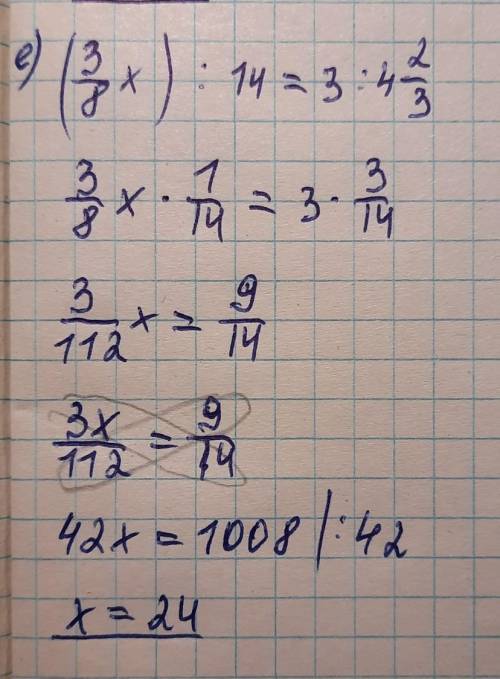 e) (3/8 x) : 14 = 3 : 4 2/3
3/8 x · 1/14 = 3 · 3/14
3/112 x = 9/14
3x/112 = 9/14
42x = 1008 | : 42
x = 24